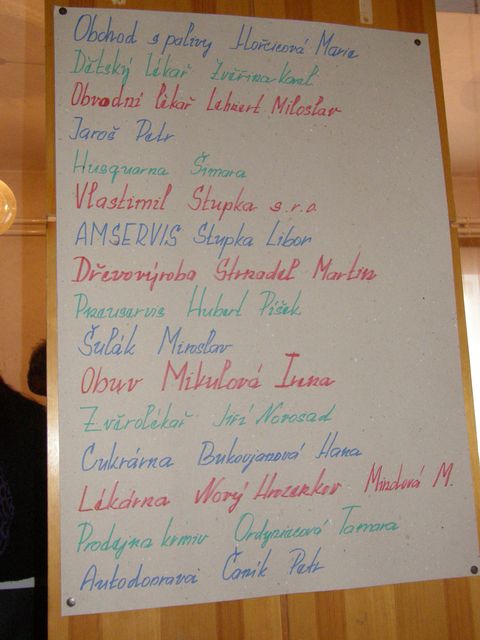 Obchod s palivy Horčicová Marie
Dětský lékař Zvěřina Karel
Obvodní lékař Lehnert Miloslav
Jaroš Petr
Husquarna Šimara
Vlastimil Stupka s.r.o.
AMSERVIS Stupka Libor
Dřevovýroba Strnadel Martin
Pneuservis Hubert Píšek
Šulák Miroslav
Obuv Mikulová Irena
Zvěrolékař Jiří Novosad
Cukrárna Bukovjanová Hana
Lékárna Nový Hrozenkov M.
Prodejna krmiv Tamara
Autodoprava Čaník Petr